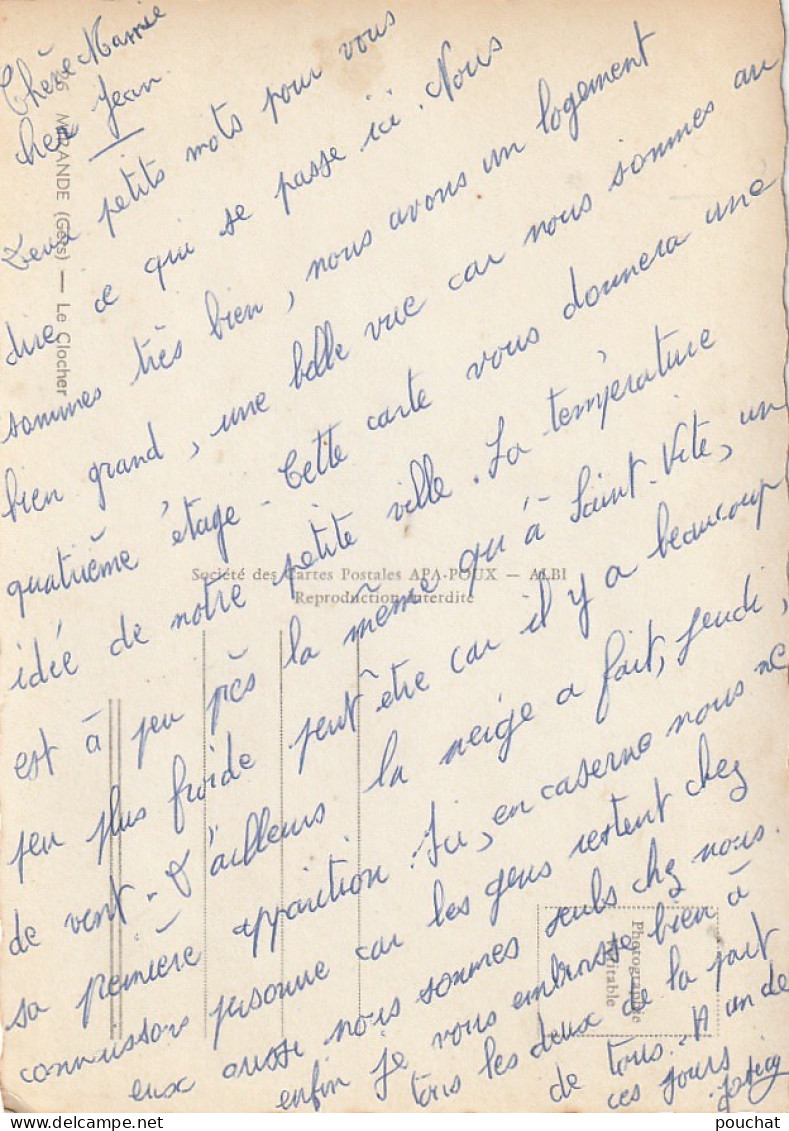 Chère Mamie
cher Jean
Deux petits mots pour vous
dire ce qui se passe ici. Nous
sommes très bien, nous avons un logement
bien grand, une belle vue car nous sommes au
quatrième étage - Cette carte vous donnera une
idée de notre petite ville. La température
est à peu près la même qu'à Saint-Vite, un
peu plus froide peut être car il y a beaucoup
de vent - D'ailleurs la neige a fait, jeudi,
sa première apparition. Ici, en caserne nous ne
connaissons personne car les gens restent chez
eux aussi nous sommes seuls chez nous.
enfin je vous embrasse bien à
tous les deux de la part
de tous. - A un de
ces jours
6 MIRANDE (Gers) — Le Clocher
Société des Cartes Postales APA-POUX — ALBI
Reproduction interdite
Photographie
Véritable
pouchat